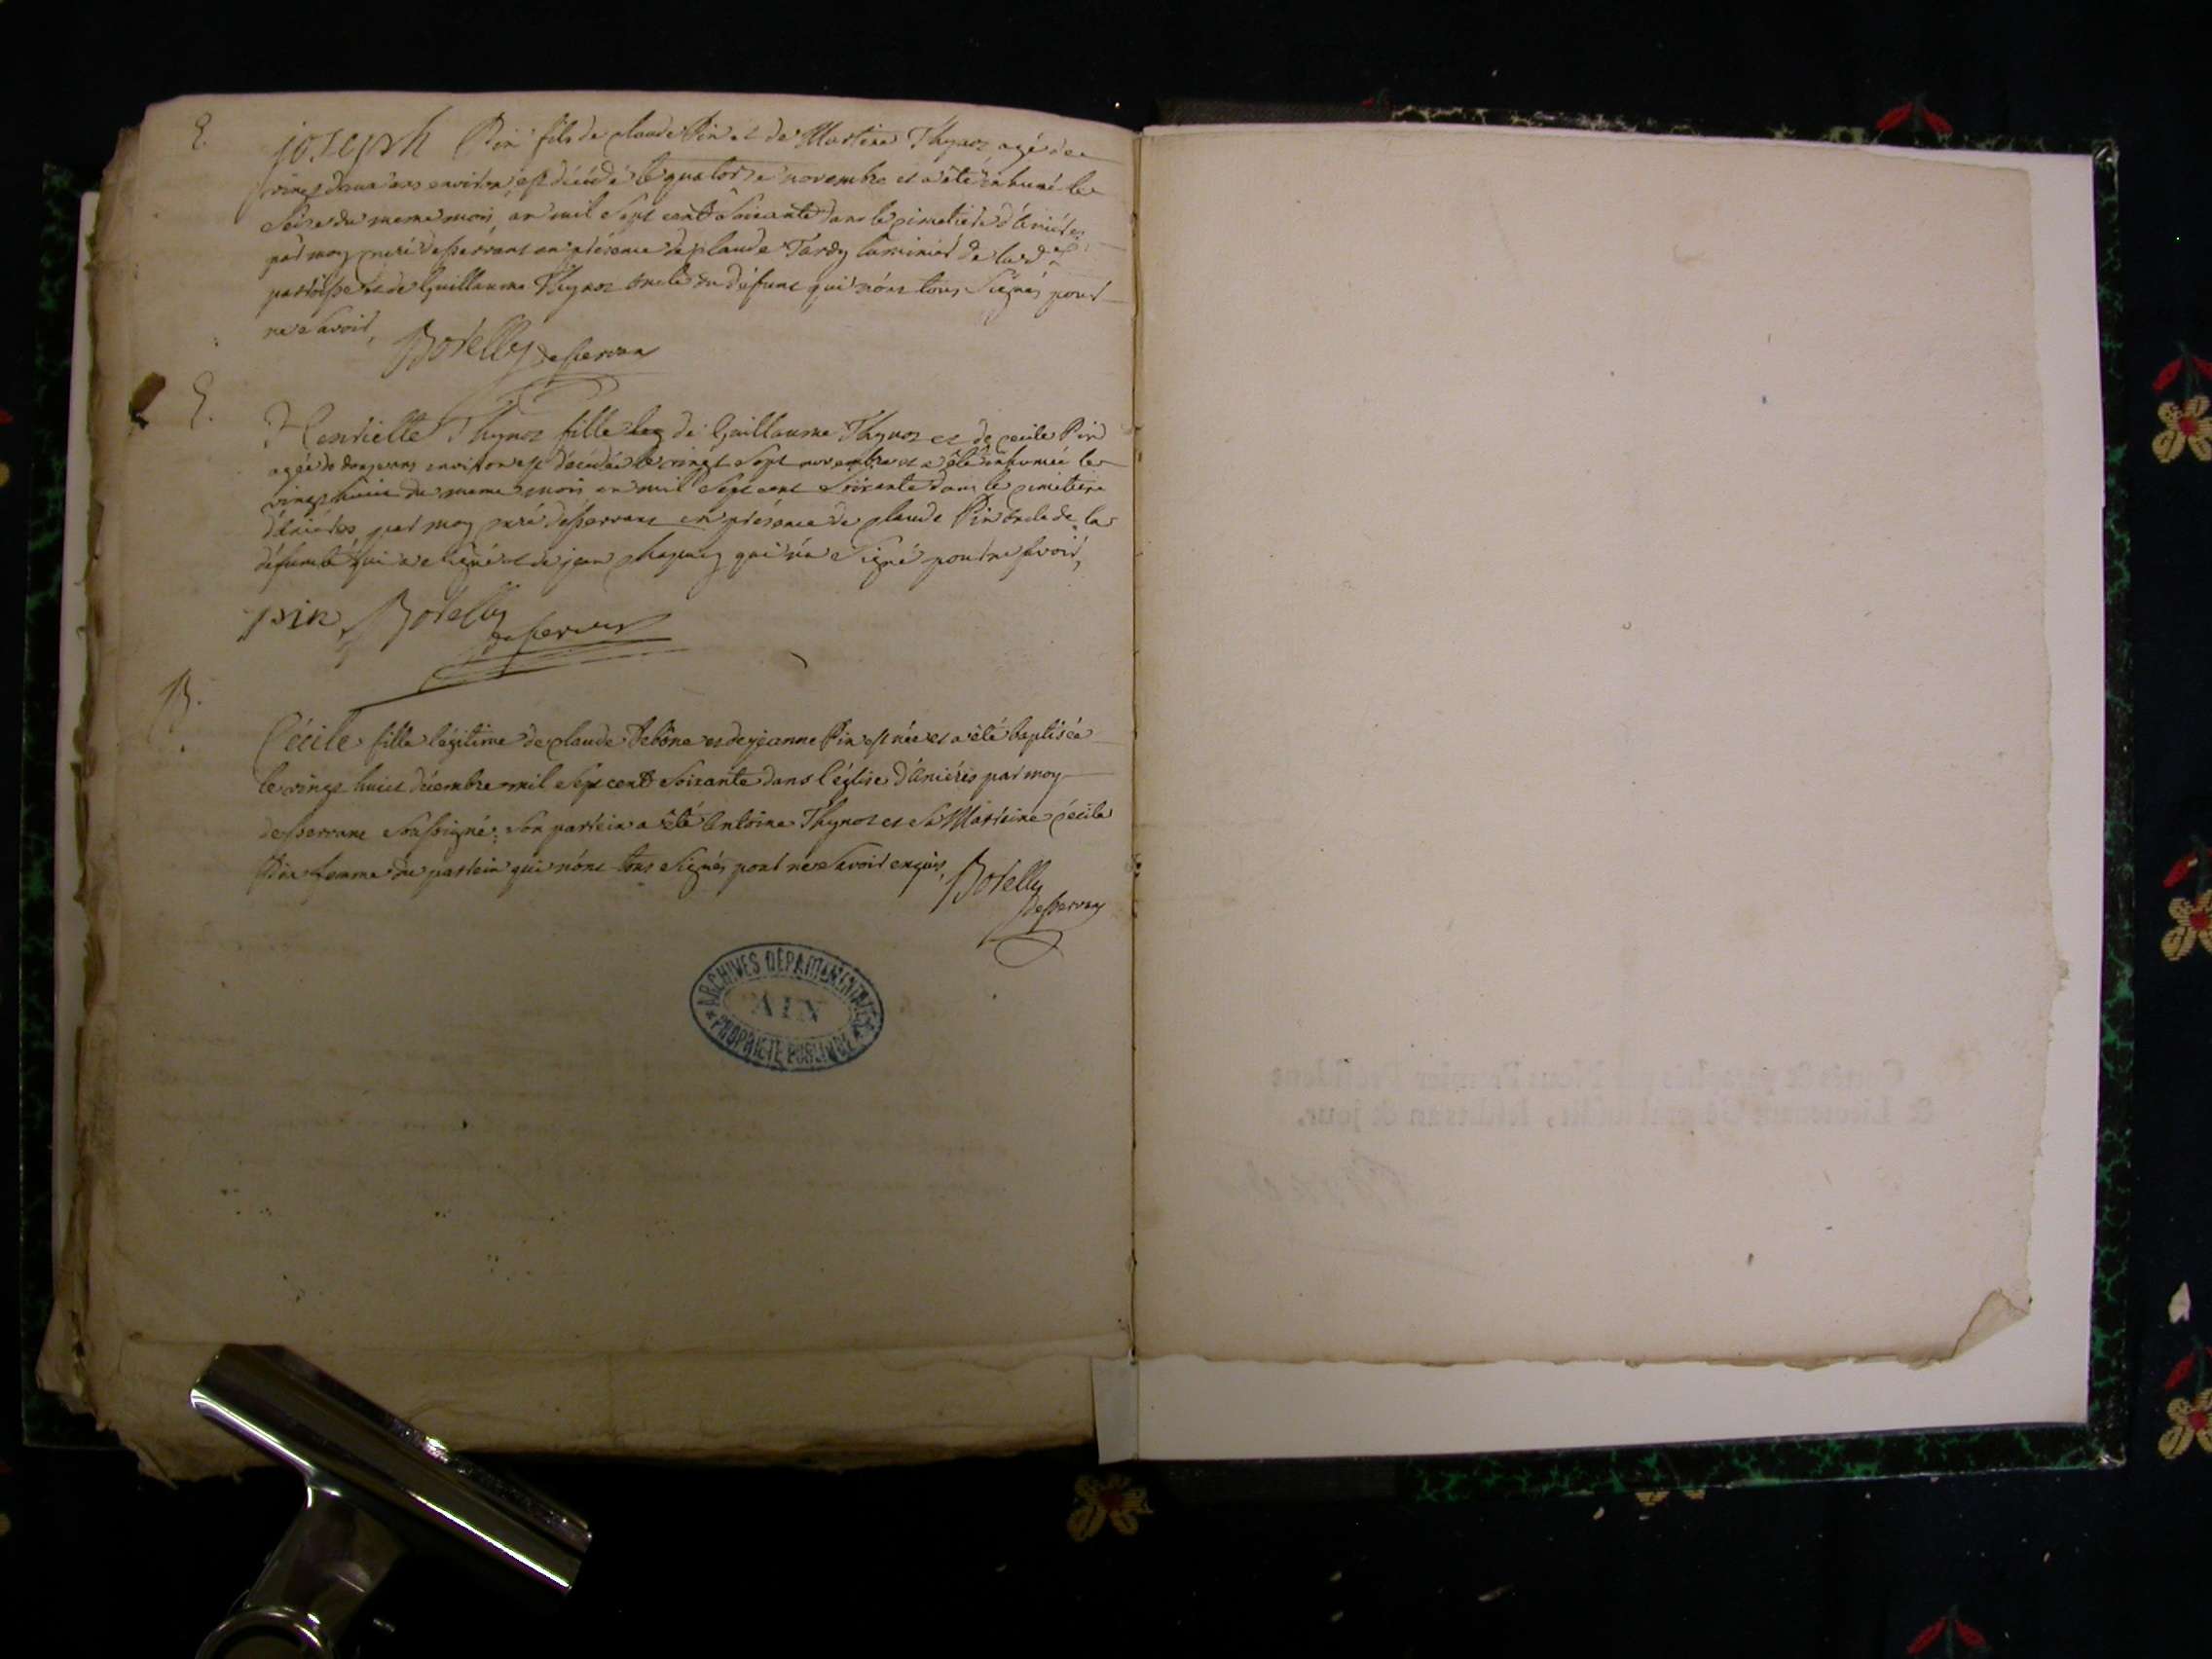 E.
joseph Pin fils de claude Pin et de Martine Thynos agé de
vingt deux ans environ est décédé le quatorse novembre et a été inhumé le
seise du meme mois, an mil sept cent soixante dans le cimetiere d'Aniéres
par moy curé desservant en présence de claude Tardy luminier de lad.
paroisse et de Guillaume Thynos oncle du défunt qui n'ont tous signés pour
ne savoir,
Borelly desservan
E.
Henriette Thynos fille leg de Guillaume Thynos et de cecile Pin
agée de ans environ est décédée le vingt sept novembre et a été inhumée le
vingt huict du meme mois an mil sept cent soixante dans le cimetiere
d'Aniéres, par moy curé desservant en présence de claude Pin oncle de la
défunte qui a signé et de jean chapuis qui n'a signé pour ne savoir,
pin Borelly
desservan
B.
Cécile fille légitime de claude Debône et de jeanne Pin est née et a été baptisée
le vingt huict décembre mil sept cent soixante dans l'église d'Aniéres par moy
desservant soussigné; son parrein a été Antoine Thynos et sa Marreine cécile
Pin femme du parrein qui n'ont tous signés pour ne savoir enquis,
Borelly
desservan
ARCHIVES DÉPARTEMENTALES
AIN
PROPRIÉTÉ PUBLIQUE
Cottés & paraphés par Nous Premier Président
& Lieutenant Général susdit, lesdits an & jour.